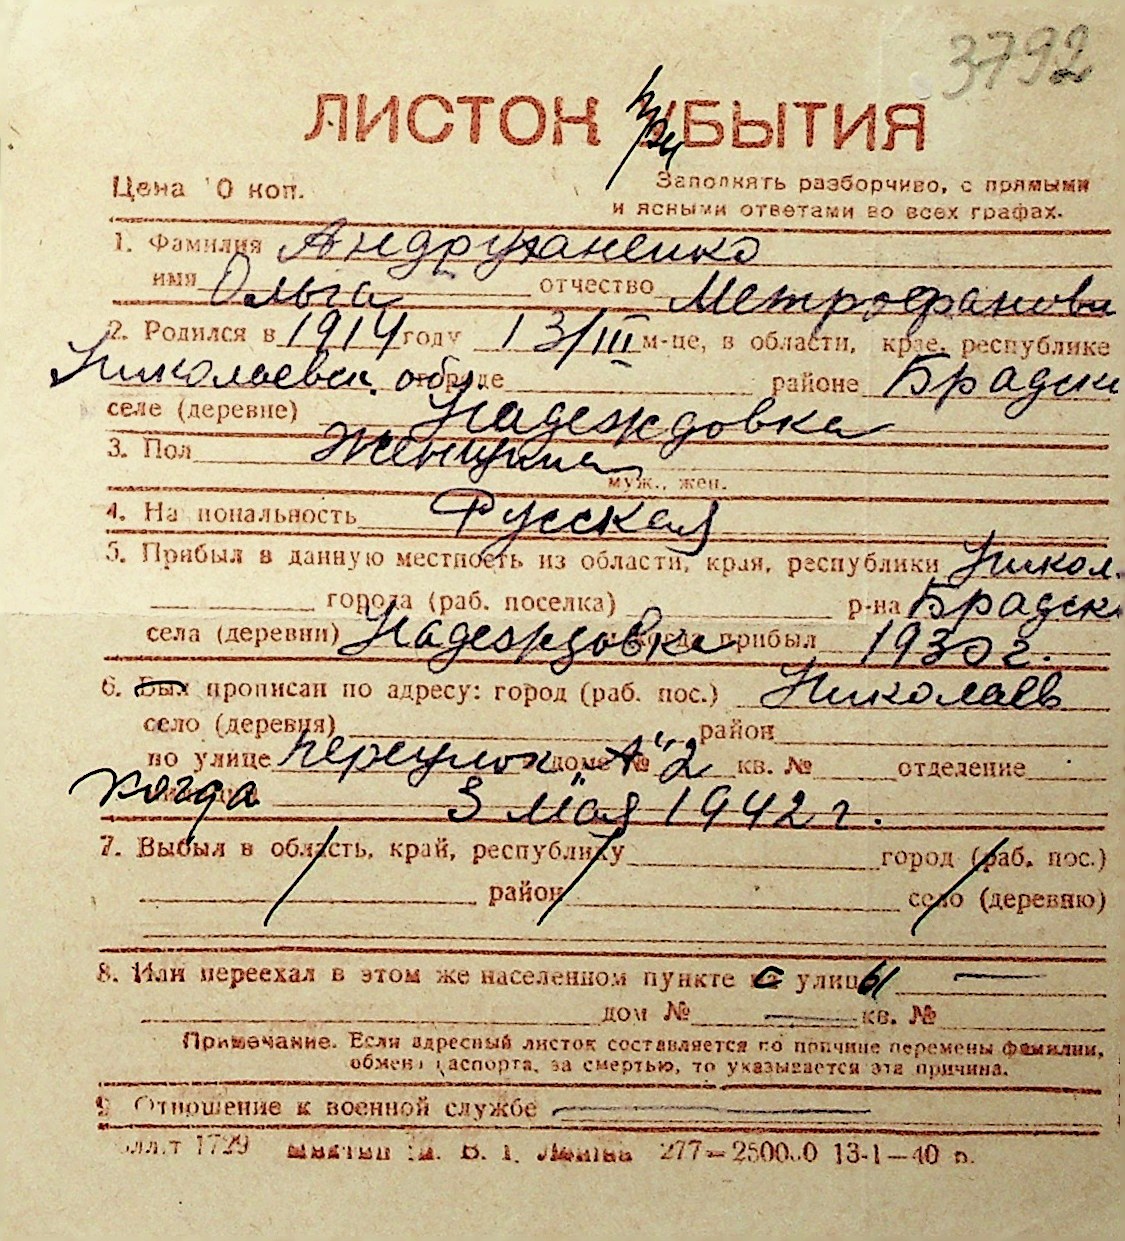 3792
ЛИСТОК ПРИБЫТИЯ
Цена 10 коп. Заполнять разборчиво, с прямыми
и ясными ответами во всех графах.
1. Фамилия Андруханенко
имя Ольга отчество Метрофанови
2. Родился в 1914 году 13/III м-це, в области, крае, республике
Николаевск. обл. городе районе Брадски
селе (деревне) Надеждовка
3. Пол Женщина
муж., жен.
4. Национальность Русская
5. Прибыл в данную местность из области, края, республики Никол.
города (раб. поселка) р-на Брадск.
села (деревни) Надеждовка прибыл 1930 г.
6. Был прописан по адресу: город (раб. пос.) Николаев
село (деревня) район
по улице переулок "А" доме № 2 кв. № отделение
когда 3 мая 1942 г.
7. Выбыл в область, край, республику город (раб. пос.)
район село (деревню)
8. Или переехал в этом же населенном пункте с улицы —
дом № — кв. №
Примечание. Если адресный листок составляется по причине перемены фамилии,
обмена паспорта, за смертью, то указывается эта причина.
9. Отношение к военной службе —
1729 277—25000 13-1—40 р.